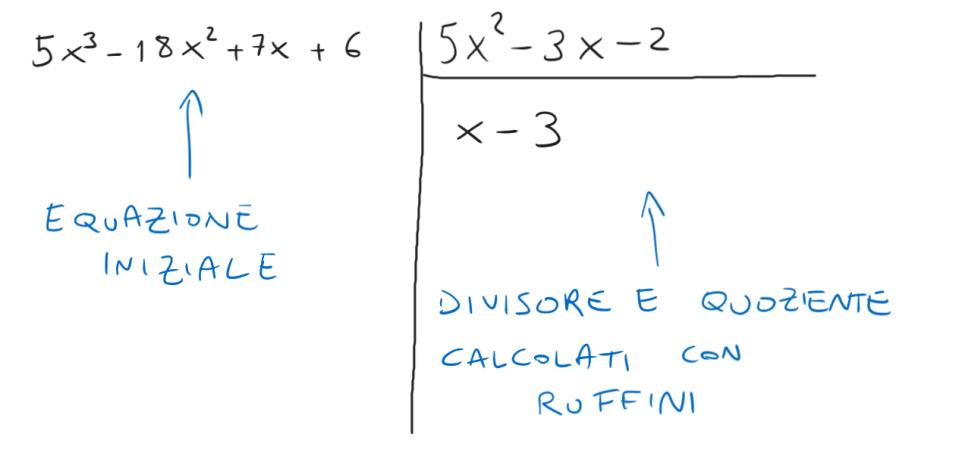 5x³ - 18x² + 7x + 6
5x² - 3x - 2
x - 3
EQUAZIONE
INIZIALE
DIVISORE E QUOZIENTE
CALCOLATI CON
RUFFINI